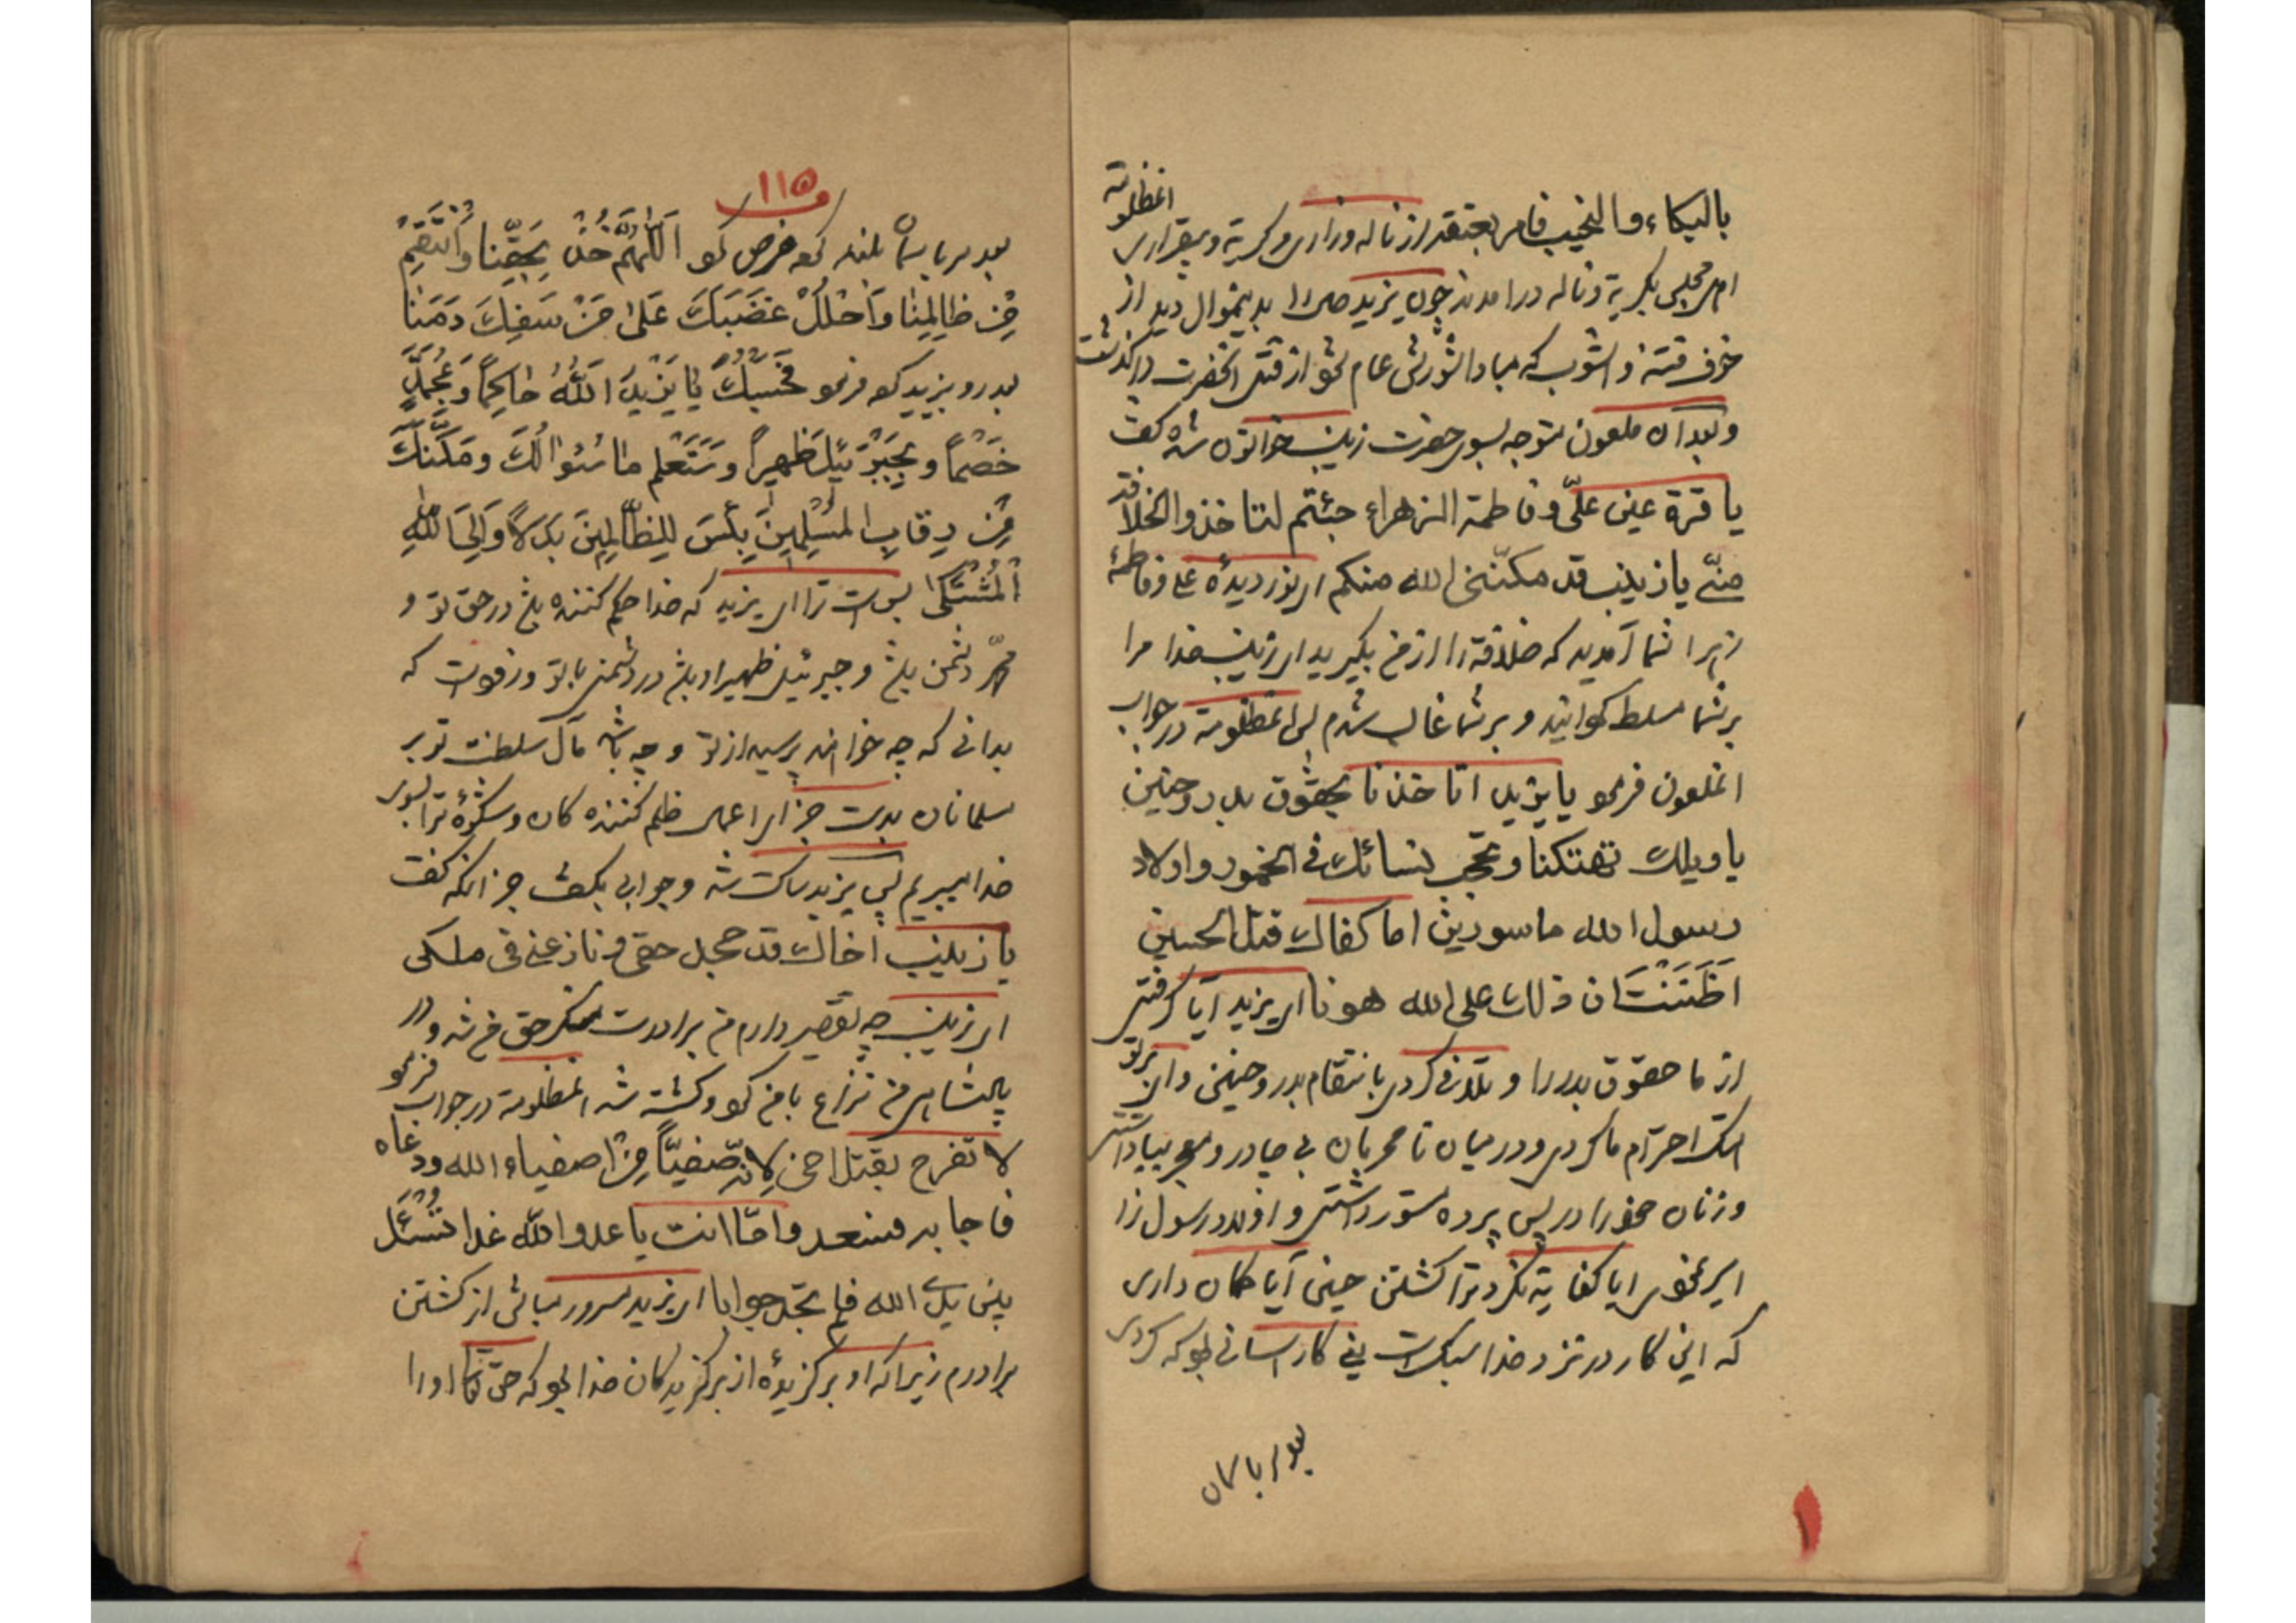 بالبكاء والنحیب فامر بعتقد از ناله وزاری و کریة و بیقراری انمظلومه
اهل مجلس بکریة و ناله درامدند چون یزید صدا بدینموال دید از
خوف فتنه و اشوب که مبادا شورش عام شود از قتل انحضرت درکذشت
و بعد ان ملعون متوجه بسوی حضرت زینب خواتون شده کفت
یا قرة عین علیّ و فاطمة الزهراء جئتم لتاخذوا الخلافة
منّی یا زینب قد مکنّنی الله منکم ای نور دیدهٔ علی و فاطمهٔ
زهرا شما آمدید که خلافة را از من بکیرید ای زینب خدا مرا
بر شما مسلط کردانید و بر شما غالب شدم پس انمظلومة در جواب
انملعون فرمود یا یزید اتاخذنا بحقوق بدر و حنین
یا ویلك تهتکنا و تحجب نسائك فی الخدور و اولاد
رسول الله ماسورین اما کفاك قتل الحسین
اَظَنَنْتَ ان ذلك علی الله هونا ای یزید آیا کرفتی
از ما حقوق بدر را و تلافی کردی بانتقام بدر و حنین وای بر تو
هتك احترام ما کردی و در میان نامحرمان بی چادر و معجر بپا داشتی
و زنان خود را در پس پرده مستور داشتی و اولاد رسول را
اسیر نمودی ایا کفایة نکرد ترا کشتن حسین آیا کمان داری
که این کار در نزد خدا سبك است یعنی کار اسانی بود که کردی
بعد سر باسمان
۱۱۵
بعد سر باسمان بلند کرده عرض کرد اَللّٰهُمَّ خُذْ بِحَقِّنا وَانْتَقِمْ
مِنْ ظالِمِنا وَاَحْلُلْ غَضَبَكَ عَلیٰ مَنْ سَفِكَ دَمَنا
بعد رو بیزید کرده فرمود حَسْبُكَ یا یَزیدُ اَللّٰهُ حاکِماً وَ بِمُحَمَّدٍ
خَصْماً و بِجَبْرَئیلَ ظَهیراً وَ سَتَعْلم ما سُئوالُكَ و مَکَّنَكَ
مِن رِقابِ المُسْلِمینَ بِئْسَ لِلظّالِمینَ بَدَلاً وَ اِلَی اللّٰهِ
اَلْمُشْتَکیٰ بس است ترا ای یزید که خدا حکم کننده باشد در حق تو و
محمّد دشمن باشد و جبرئیل ظهیر او باشد در دشمنی با تو و زود است که
بدانی که چه خواهند پرسید از تو و چه باشد مآل سلطنت تو بر
مسلمانان بد است جزای اعمال ظلم کننده کان و شکوهٔ ترا بسوی
خدا میبریم پس یزید ساکت شد و جوابی نکفت جز انکه کفت
یا زینب اخاك قد جحد حقی و نازعنی فی ملکی
ای زینب چه تقصیر دارم من برادرت منکر حق من شد و در
پادشاهی من نزاع با من کرد و کشته شد انمظلومة در جواب فرمود
لا تفرح بقتل اخی لِانّه صفیّاً مِنْ اصفیاء الله و دعاه
فاجابه فسعد و امّا انت یا عدو اللّٰه غداً تُسْئَل
بین یدی الله فلم تجد جوابا ای یزید مسرور مباش از کشتن
برادرم زیرا که او برکزیدهٔ از برکزیدکان خدا بود که حق تعالی او را